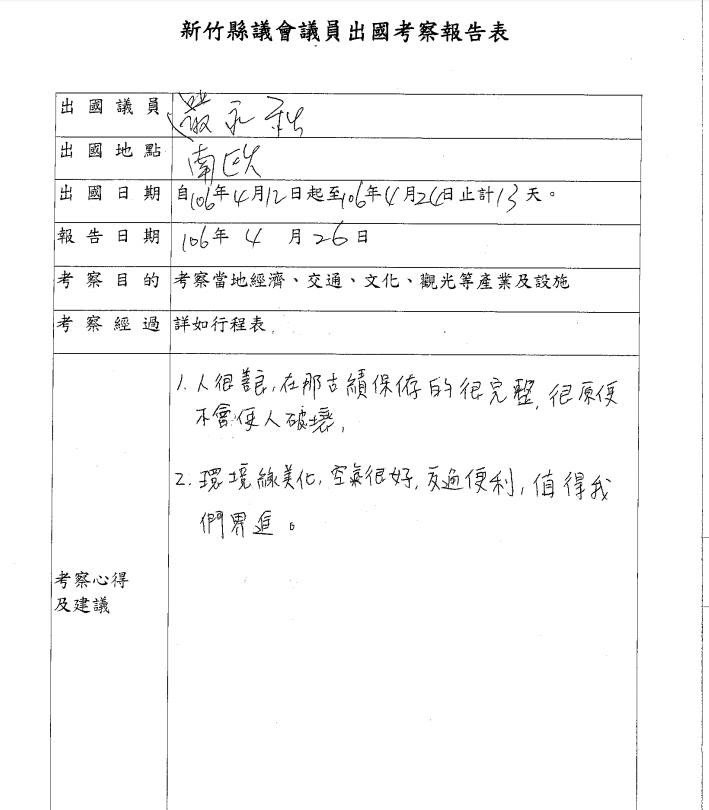 新竹縣議會議員出國考察報告表
出國議員 嚴永秋
出國地點 南欧
出國日期 自106年4月12日起至106年4月24日止計13天。
報告日期 106年4月26日
考察目的 考察當地經濟、交通、文化、觀光等產業及設施
考察經過 詳如行程表.
1.人很善良,在那古績保存的很完整,很原使
不會使人破壞,
2.環境綠美化,空氣很好,交通便利,值得我
們界進。
考察心得
及建議